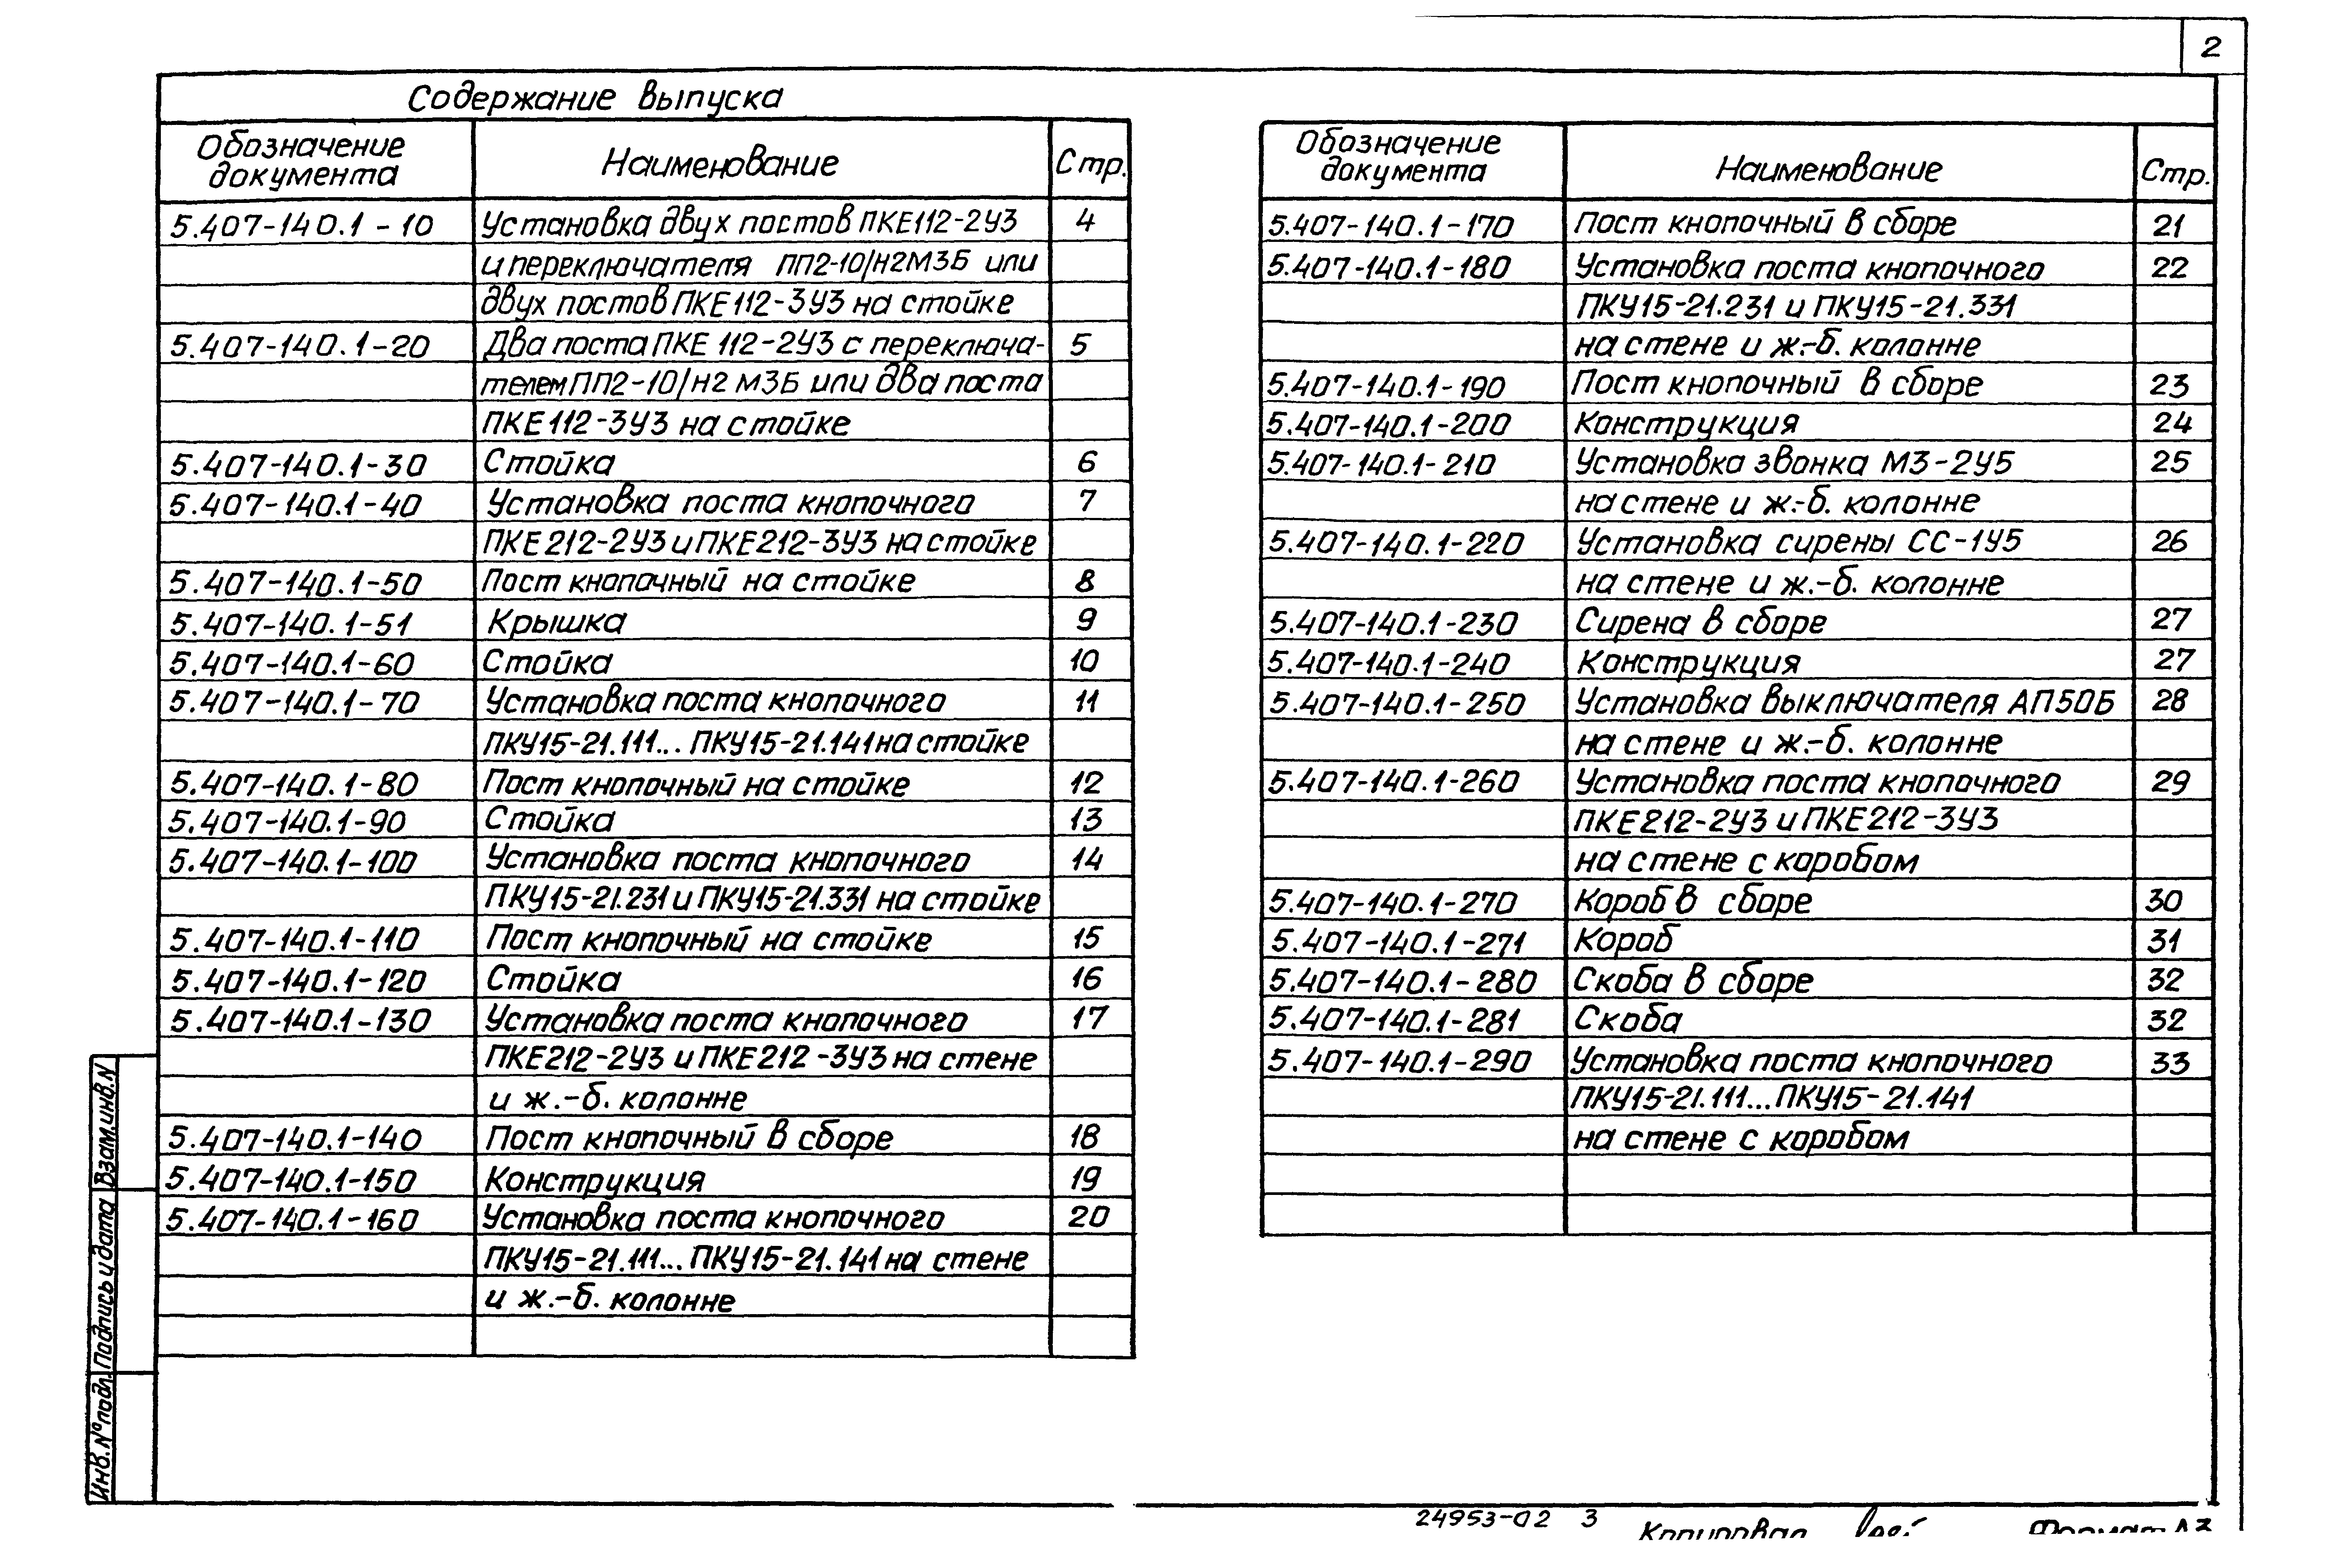 2
Содержание выпуска
Обозначение документа Наименование Стр.
5.407-140.1-10 Установка двух постов ПКЕ112-2У3 4
и переключателя ПП2-10/Н2М3Б или
двух постов ПКЕ 112-3У3 на стойке
5.407-140.1-20 Два поста ПКЕ 112-2У3 с переключа- 5
телем ПП2-10/Н2 М3Б или два поста
ПКЕ 112-3У3 на стойке
5.407-140.1-30 Стойка 6
5.407-140.1-40 Установка поста кнопочного 7
ПКЕ 212-2У3 и ПКЕ212-3У3 на стойке
5.407-140.1-50 Пост кнопочный на стойке 8
5.407-140.1-51 Крышка 9
5.407-140.1-60 Стойка 10
5.407-140.1-70 Установка поста кнопочного 11
ПКУ15-21.111... ПКУ15-21.141 на стойке
5.407-140.1-80 Пост кнопочный на стойке 12
5.407-140.1-90 Стойка 13
5.407-140.1-100 Установка поста кнопочного 14
ПКУ15-21.231 и ПКУ15-21.331 на стойке
5.407-140.1-110 Пост кнопочный на стойке 15
5.407-140.1-120 Стойка 16
5.407-140.1-130 Установка поста кнопочного 17
ПКЕ212-2У3 и ПКЕ212-3У3 на стене
и ж.-б. колонне
5.407-140.1-140 Пост кнопочный в сборе 18
5.407-140.1-150 Конструкция 19
5.407-140.1-160 Установка поста кнопочного 20
ПКУ15-21.111... ПКУ15-21.141 на стене
и ж.-б. колонне
Обозначение документа Наименование Стр.
5.407-140.1-170 Пост кнопочный в сборе 21
5.407-140.1-180 Установка поста кнопочного 22
ПКУ15-21.231 и ПКУ15-21.331
на стене и ж.-б. колонне
5.407-140.1-190 Пост кнопочный в сборе 23
5.407-140.1-200 Конструкция 24
5.407-140.1-210 Установка звонка МЗ-2У5 25
на стене и ж.-б. колонне
5.407-140.1-220 Установка сирены СС-1У5 26
на стене и ж.-б. колонне
5.407-140.1-230 Сирена в сборе 27
5.407-140.1-240 Конструкция 27
5.407-140.1-250 Установка выключателя АП50Б 28
на стене и ж.-б. колонне
5.407-140.1-260 Установка поста кнопочного 29
ПКЕ212-2У3 и ПКЕ212-3У3
на стене с коробом
5.407-140.1-270 Короб в сборе 30
5.407-140.1-271 Короб 31
5.407-140.1-280 Скоба в сборе 32
5.407-140.1-281 Скоба 32
5.407-140.1-290 Установка поста кнопочного 33
ПКУ15-21.111... ПКУ15-21.141
на стене с коробом
Инв. № подл. Подпись и дата Взам. инв. N
24953-02 3
Копировал Формат А3